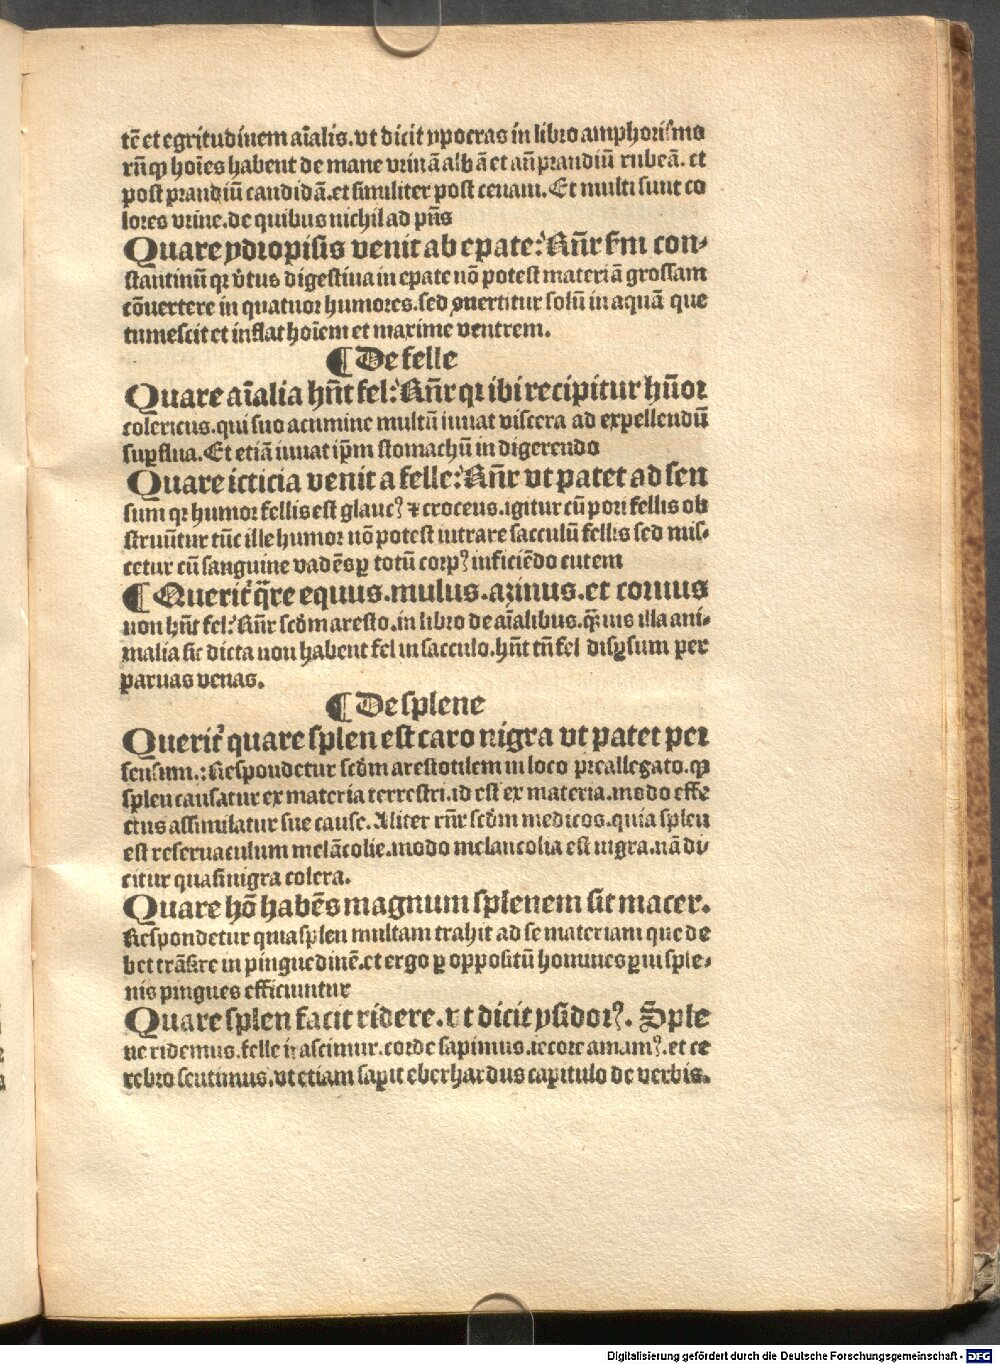 tē et egritudinem aīalis. vt dicit ypocras in libro amphorismo
rū̄ ꝙ hoīes habent de mane vrinā albā et añ prandiū rubeā. et
post prandiū candidā. et similiter post cenam. Et multi sunt co
lores vrine. de quibus nichil ad pñs
Quare ydropisis venit ab epate? Rñr fm con⸗
stantinū qr v̄tus digestiua in epate nō potest materiā grossam
cōuertere in quatuor humores. sed ꝯuertitur solū in aquā que
tumescit et inflat hoīem et maxime ventrem.
¶ De felle
Quare aīalia hñt fel? Rñr qr ibi recipitur hūor
colericus. qui suo acumine multū iuuat viscera ad expellendū
suꝑflua. Et etiā iuuat ip̄m stomachū in digerendo
Quare icticia venit a felle? Rñr vt patet ad sen
sum qr humor fellis est glaucꝰ ⁊ croceus. igitur cū pori fellis ob
struūtur tūc ille humor nō potest intrare sacculū fellis sed mis⸗
cetur cū sanguine vadēs ꝑ totū corpꝰ inficiēdo cutem
¶ Querit᷑ q̄re equus. mulus. azinus. et coruus
non hñt fel? Rñr scd̄m aresto. in libro de aīalibus. ꝙ̄uis illa ani⸗
malia sic dicta non habent fel in sacculo. hñt tñ fel disꝑsum per
paruas venas.
¶ De splene
Querit᷑ quare splen est caro nigra vt patet per
sensum.? Respondetur scd̄m arestotilem in loco preallegato. ꝙ
splen causatur ex materia terrestri. id est ex materia. modo effe
ctus assimulatur sue cause. Aliter rñr scd̄m medicos. quia splen
est reseruaculum melācolie. modo melancolia est nigra. nā di⸗
citur quasi nigra colera.
Quare hō habēs magnum splenem sit macer.
Respondetur quia splen multam trahit ad se materiam que de
bet trāsire in pinguedinē. et ergo ꝑ oppositū homines ꝑui sple⸗
nis pingues efficiuntur
Quare splen facit ridere. vt dicit ysidorꝰ. Sple
ne ridemus. felle irascimur. corde sapimus. iecore amamꝰ. et ce
rebro sentimus. vt etiam sapit eberhardus capitulo de verbis.
Digitalisierung gefördert durch die Deutsche Forschungsgemeinschaft - DFG